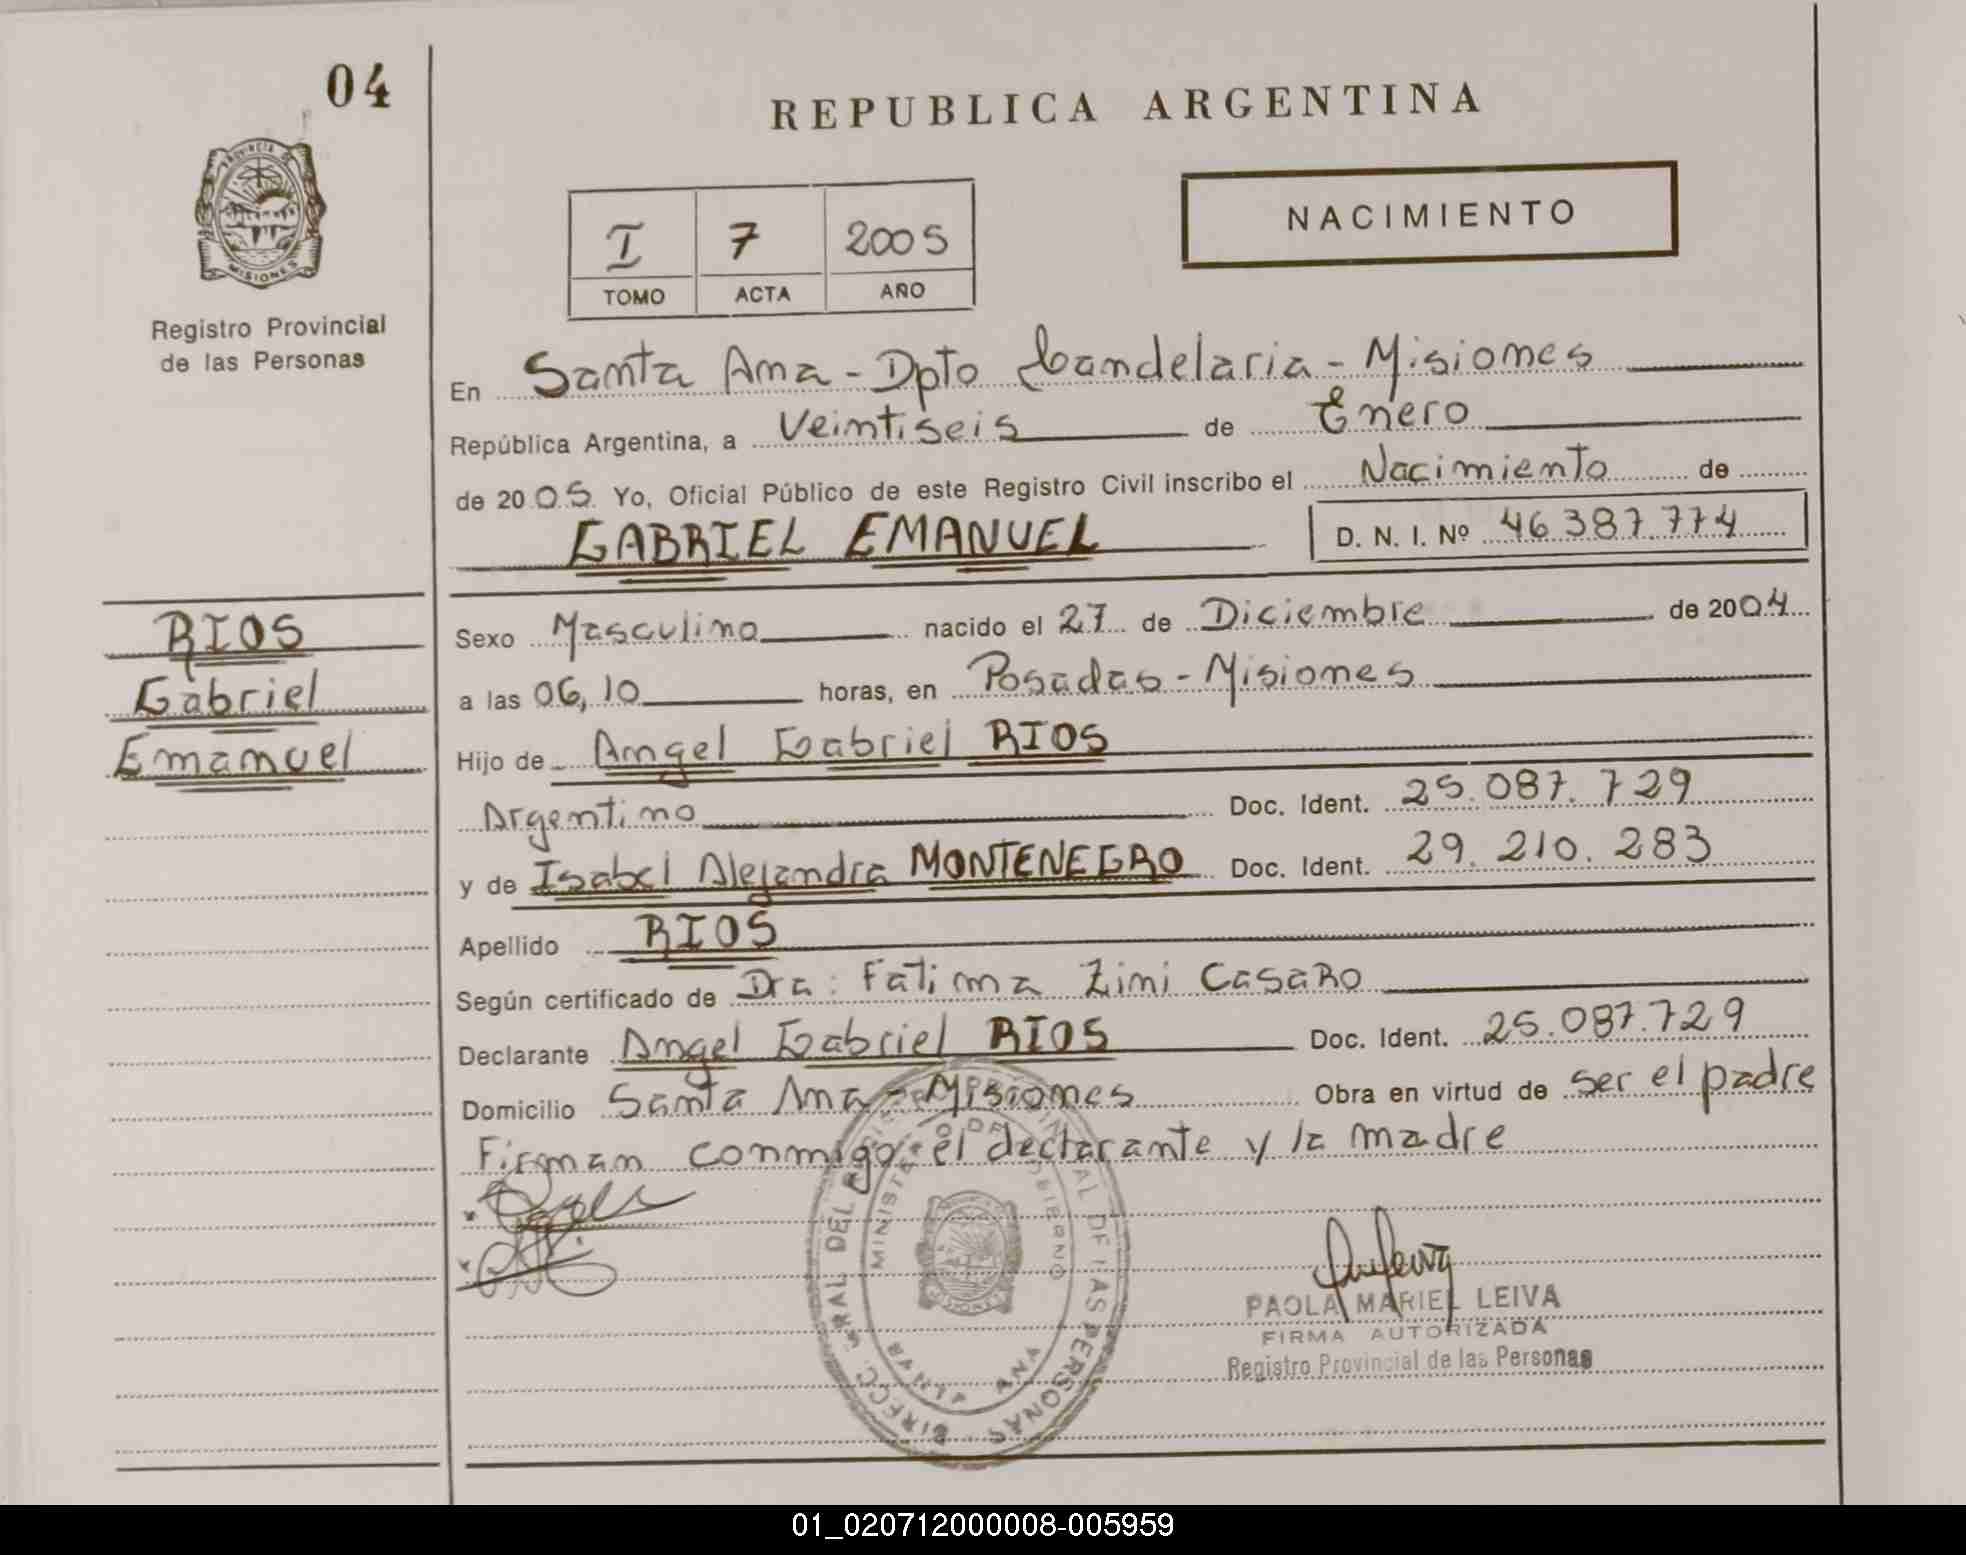 04
REPUBLICA ARGENTINA
PROVINCIA DE
MISIONES
Registro Provincial
de las Personas
I 7 2005
TOMO ACTA AÑO
NACIMIENTO
En Santa Ana - Dpto Candelaria - Misiones
República Argentina, a Veintiseis de Enero
de 2005 Yo, Oficial Público de este Registro Civil inscribo el Nacimiento de
GABRIEL EMANUEL D. N. I. Nº 46387.774
RIOS
Gabriel
Emanuel
Sexo Masculino nacido el 27 de Diciembre de 2004
a las 06,10 horas, en Posadas - Misiones
Hijo de Angel Gabriel RIOS
Argentino Doc. Ident. 25.087.729
y de Isabel Alejandra MONTENEGRO Doc. Ident. 29.210.283
Apellido RIOS
Según certificado de Dra: Fatima Zini Casaro
Declarante Angel Gabriel RIOS Doc. Ident. 25.087.729
Domicilio Santa Ana - Misiones Obra en virtud de ser el padre
Firman conmigo el declarante y la madre
MINISTERIO DE GOBIERNO
SANTA ANA
PAOLA MARIEL LEIVA
FIRMA AUTORIZADA
Registro Provincial de las Personas
01_020712000008-005959